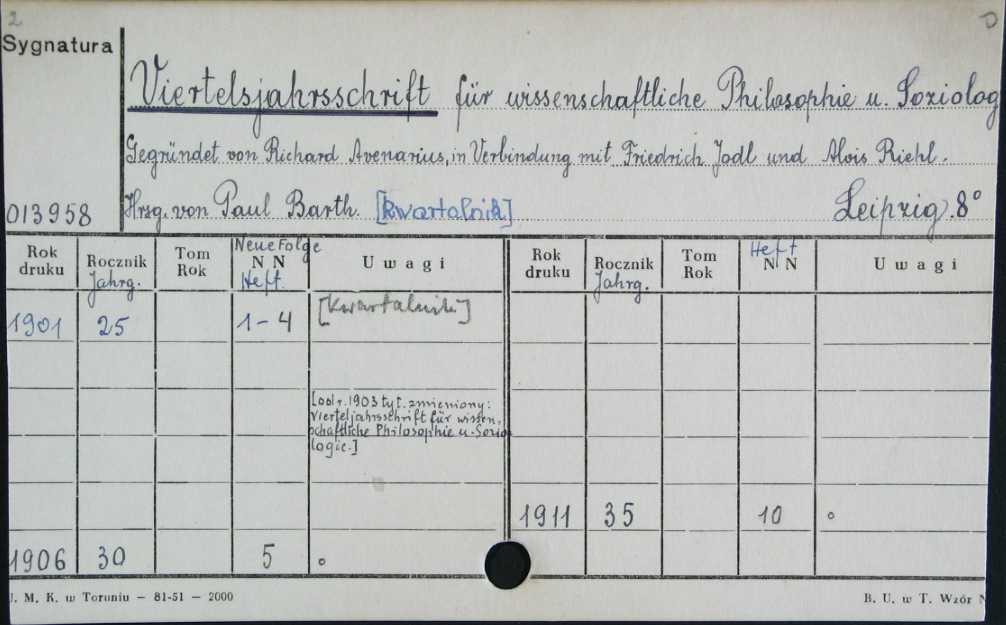 2
Sygnatura
Viertelsjahrsschrift für wissenschaftliche Philosophie u. Soziolog
Gegründet von Richard Avenarius, in Verbindung mit Friedrich Jodl und Alois Riehl.
013958 Hrsg. von Paul Barth. [kwartalnik] Leipzig. 8°
Rok druku Rocznik Jahrg. Tom Rok Neue Folge N N Heft. Uwagi
Rok druku Rocznik Jahrg. Tom Rok Heft N N Uwagi
1901 25 1-4 [kwartalnik]
[od r. 1903 tyt. zmieniony:
Vierteljahrsschrift für wissen,
schaftliche Philosophie u. Sozio
logie.]
1911 35 10 °
1906 30 5 °
J. M. K. w Toruniu — 81-51 — 2000
B. U. w T. Wzór N